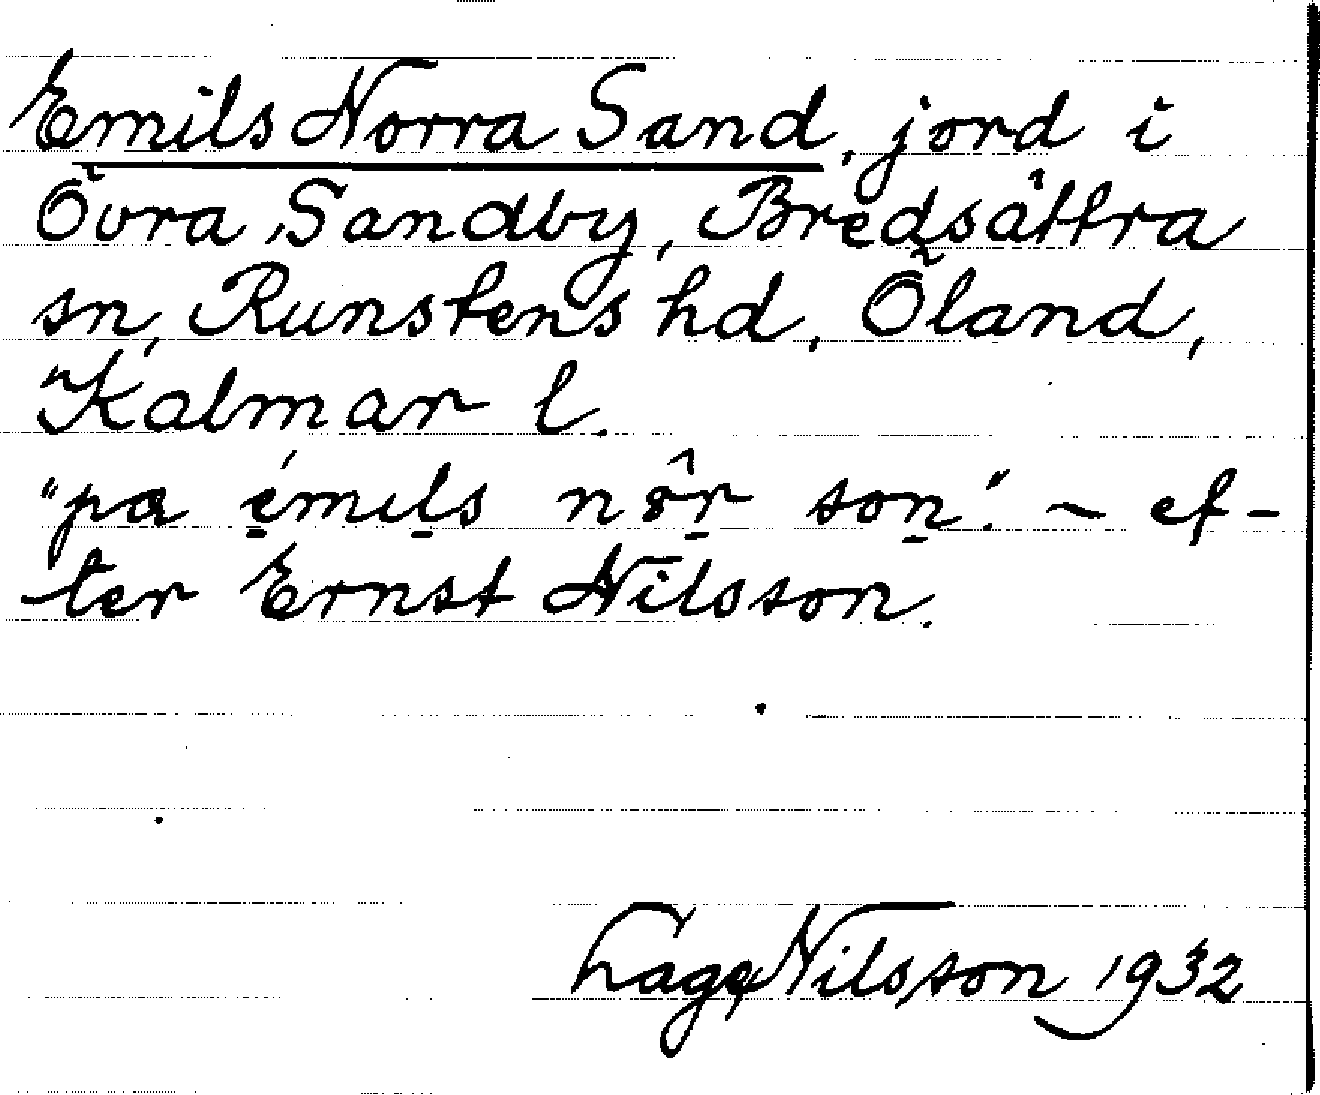 Emils Norra Sand, jord i
Övra Sandby, Bredsättra
sn, Runstens hd, Öland,
Kalmar l.
"pa émils nôr son". ~ ef-
ter Ernst Nilsson.
Lage Nilsson 1932